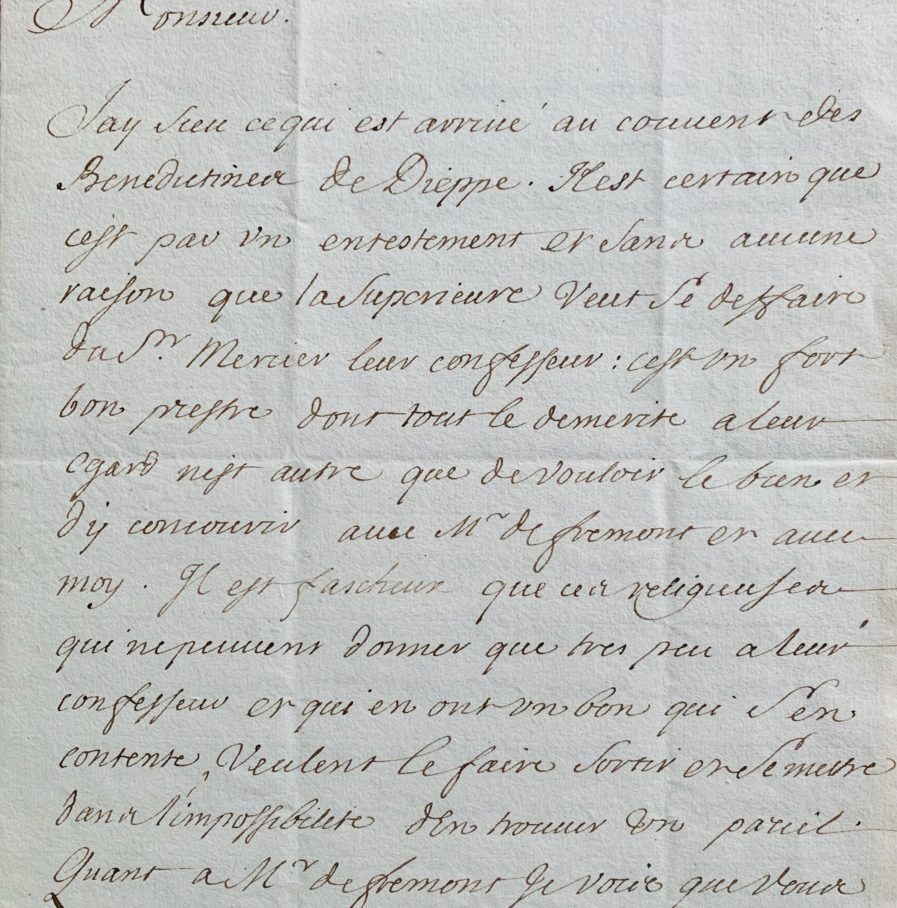 Monsieur.
Jay sceu ce qui est arriué au couuent des
Benedictines de Dieppe. Il est certain que
c'est par vn entestement et sans aucune
raison que la Superieure veut se deffaire
du Sr. Mercier leur confesseur : c'est vn fort
bon prestre dont tout le demerite a leur
egard n'est autre que de vouloir le bien et
d'y concourir auec Mr de fremont et auec
moy. Il est fascheux que ces religieuses
qui ne peuuent donner que tres peu a leur
confesseur et qui en ont vn bon qui s'en
contente, veulent le faire sortir et se mettre
dans l'impossibilité d'en trouuer vn pareil.
Quant a Mr de fremont Je vois que vous